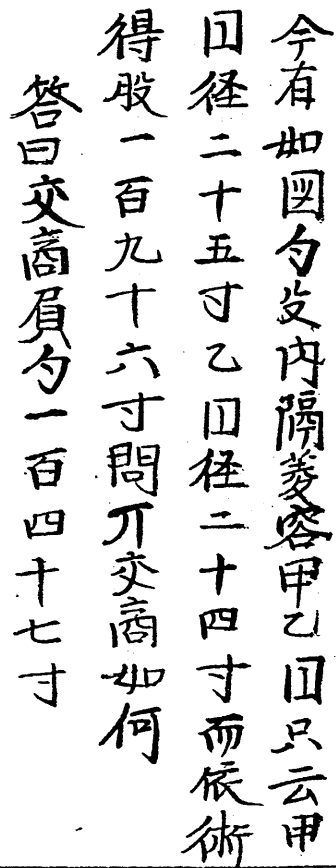 今有如図勾殳内隔菱容甲乙囙只云甲
囙径二十五寸乙囙径二十四寸而依術
得股一百九十六寸問丌交商如何
答曰交商屓勾一百四十七寸